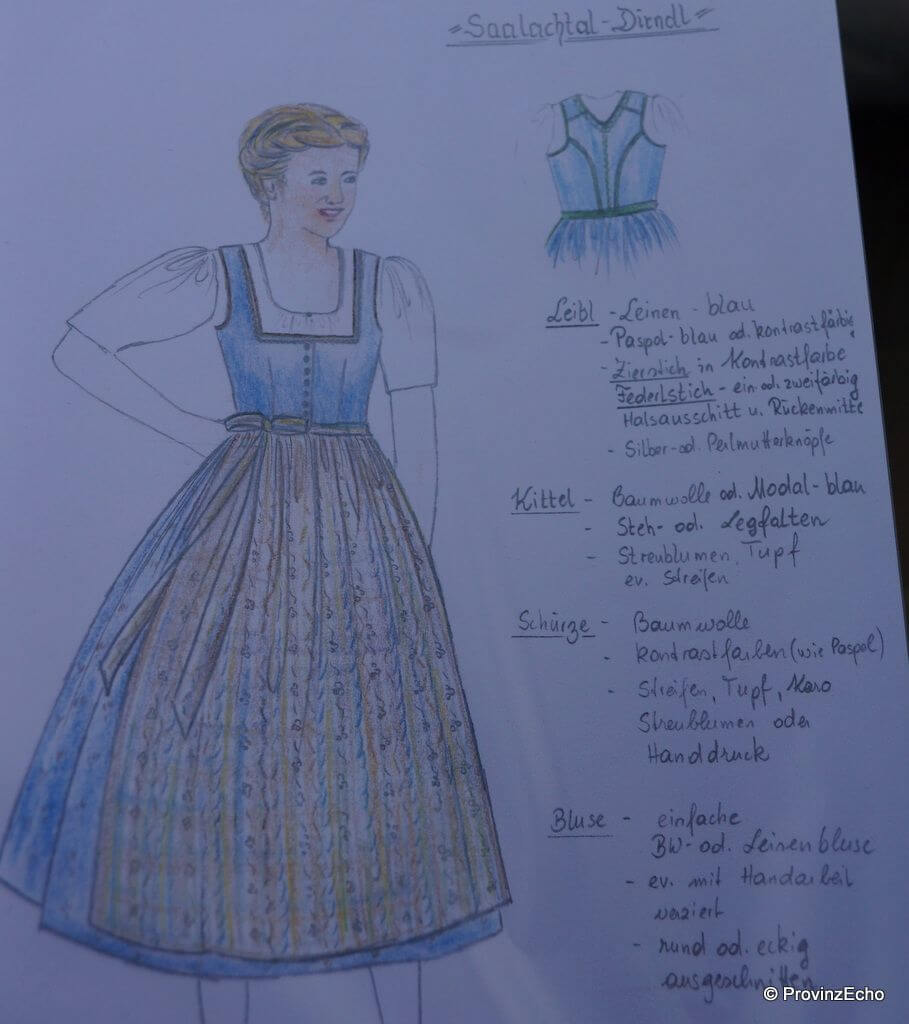 "Saalachtal-Dirndl"
Leibl - Leinen - blau
- Paspol - blau od. kontrastfärbig
- Zierstich in Kontrastfarbe
Federlstich - ein od. zweifärbig
Halsausschitt u. Rückenmitte
- Silber- od. Perlmutterknöpfe
Kittel - Baumwolle od. Modal - blau
- Steh- od. Legfalten
- Streublumen, Tupf
ev. Streifen
Schürze - Baumwolle
- kontrastfarben (wie Paspol)
- Streifen, Tupf, Karo
Streublumen oder
Handdruck
Bluse - einfache
BW- od. Leinenbluse
- ev. mit Handarbeit
verziert
- rund od. eckig
ausgeschnitten
© ProvinzEcho